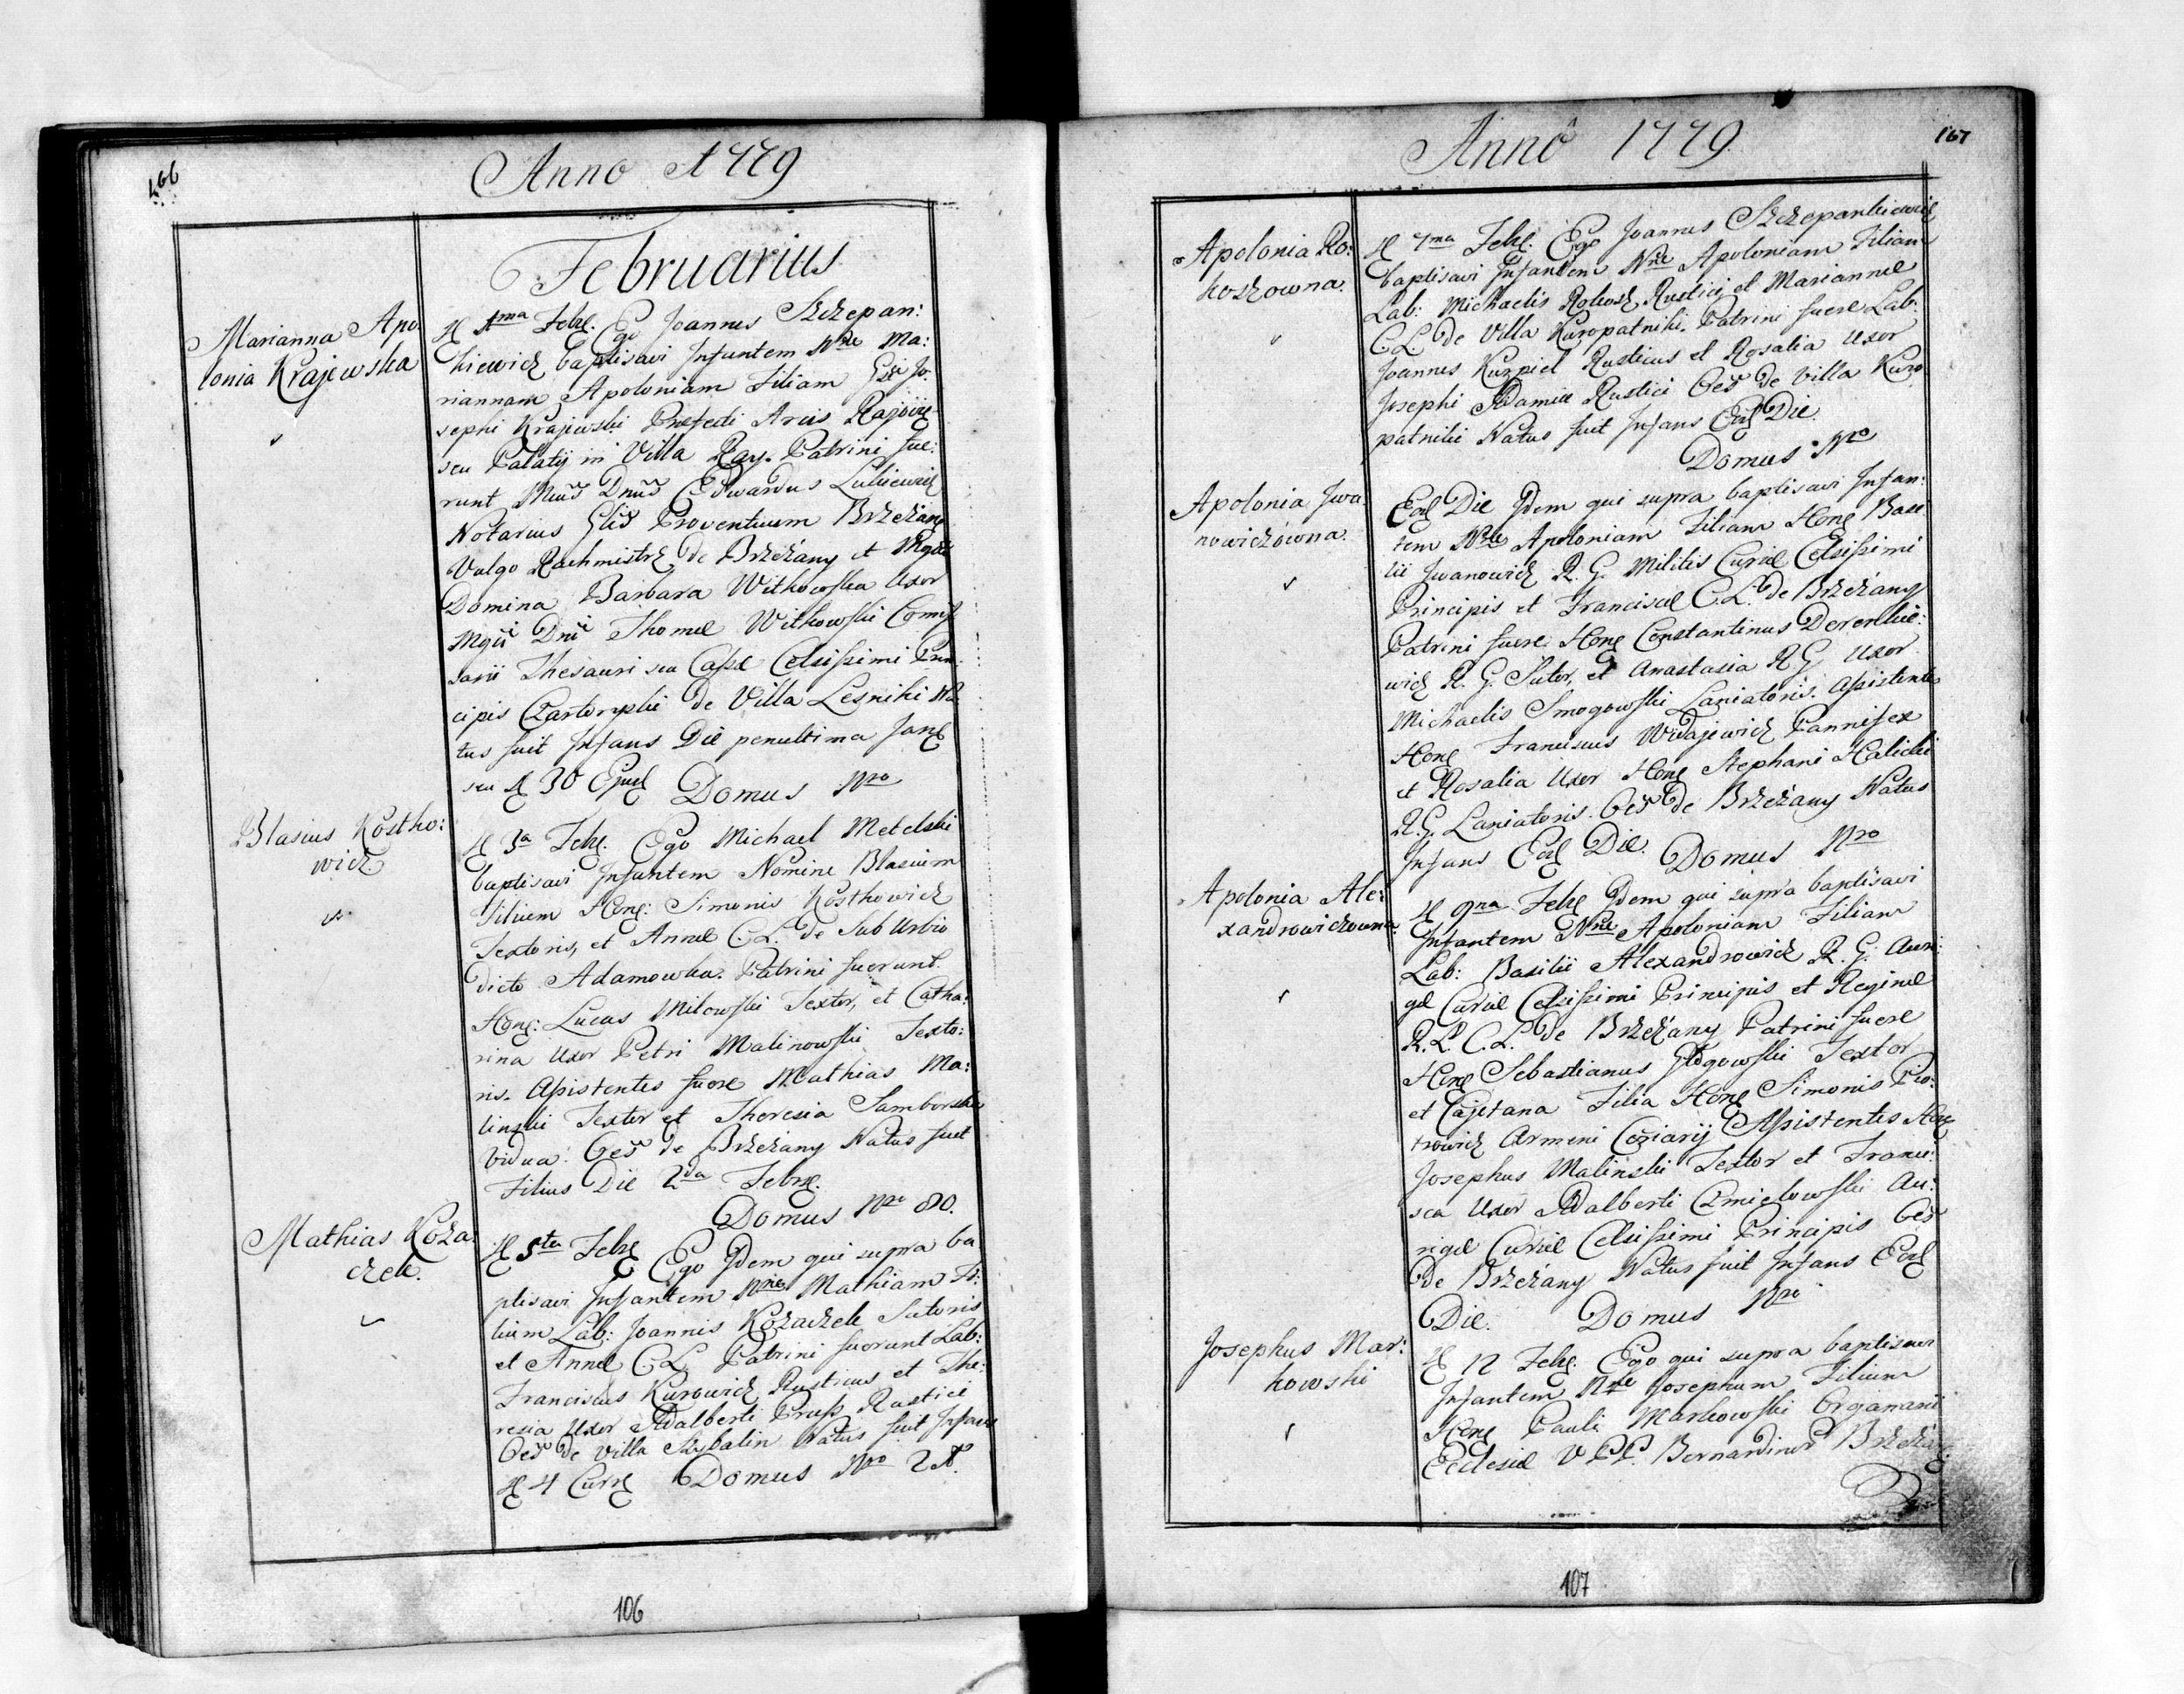 166
Anno 1779
Februarius
Marianna Apo:
lonia Krajewska
1ma Febr. Ego Joannes Szczepan:
kiewicz baptisavi Infantem Nne Ma:
riannam Apoloniam Filiam Gsi Jo:
sephi Krajewski Prefecti Arcis Rajoviez
seu Palatij in Villa Ray. Patrini fue:
runt Dnus Edwardus
Notarius Proventuum Brzezan
Vulgo Rachmistrz de Brzezany et
Domina Barbara Witkowska Uxor
Dni Thomæ Witkowski Comis
sarii Thesauri seu Cassæ Celsissimi Prin
cipis Czartoryski de Villa Lesniki Na
tus fuit Infans Die penultima Jan
seu 30 Domus Nro
Blasius Kostko:
wicz
3a Febr. Ego Michael Metelski
baptisavi Infantem Nomine Blasium
Filium Hon: Simonis Kostkowicz
Textoris, et Annæ C. L. de Sub Urbio
dicto Adamowka. Patrini fuerunt
Hon: Lucas Milowski Textor, et Catha:
rina Uxor Petri Malinowski Texto:
ris. Assistentes fuere Mathias Ma:
linski Textor et Theresia Samborska
Vidua. Oes de Brzezany Natus fuit
Filius Die 2da Febr.
Domus Nro 80.
Mathias Koza
czek.
5ta Febr Ego Idem qui supra ba
ptisavi Infantem Nne Mathiam Fi:
lium Lab: Joannis Kozaczek Sutoris
et Annæ C. L. Patrini fuerunt Lab:
Franciscus Kurowicz Rusticus et The:
resia Uxor Adalberti Pruss Rustici
Oes de Villa Szybalin Natus fuit Infans
4 Curr Domus Nro
106
167
Anno 1779
Apolonia Ro:
koszowna.
7ma Febr. Ego Joannes Szczepankiewicz
baptisavi Infantem Nne Apoloniam Filiam
Lab: Michaelis Rokosz Rustici et Mariannæ
C. L. de Villa Kuropatniki. Patrini fuere Lab:
Joannes Kuzpiel Rusticus et Rosalia Uxor
Josephi Rustici Oes de Villa Kuro
patniki Natus fuit Infans Ead Die
Domus Nro
Apolonia Iwa
nowiczowna.
Ead Die Idem qui supra baptisavi Infan:
tem Nne Apoloniam Filiam Hon Basi
lii Iwanowicz R. G. Militis Curiæ Celsissimi
Principis et Franciscæ C. L. de Brzezany
Patrini fuere Hon Constantinus Derenkie:
wicz R. G. Sutor, et Anastasia R. G. Uxor
Michaelis Smogowski Laniatoris. Assistentes
Hon Franciscus Widajewicz Pannifex
et Rosalia Uxor Hon Stephani Halicki
R. G. Laniatoris. Oes de Brzezany Natus
Infans Ead Die. Domus Nro
Apolonia Ale:
xandrowiczowna.
9na Febr Idem qui supra baptisavi
Infantem Nne Apoloniam Filiam
Lab: Basilii Alexandrowicz R. G. Auri
gæ Curiæ Celsissimi Principis et Reginæ
R. L. C. L. de Brzezany Patrini fuere
Hon Sebastianus Glogowski Textor
et Cajetana Filia Hon Simonis Pio:
trowicz Armeni Assistentes Hon
Josephus Malinski Textor et Franci:
sca Uxor Adalberti Cmielowski Au:
rigæ Curiæ Celsissimi Principis Oes
de Brzezany Natus fuit Infans Ead
Die. Domus Nro
Josephus Mar:
kowski
12 Febr. Ego qui supra baptisavi
Infantem Nne Josephum Filium
Hon Pauli Markowski Organarii
Ecclesiæ V PP. Bernardinor Brzezan
107